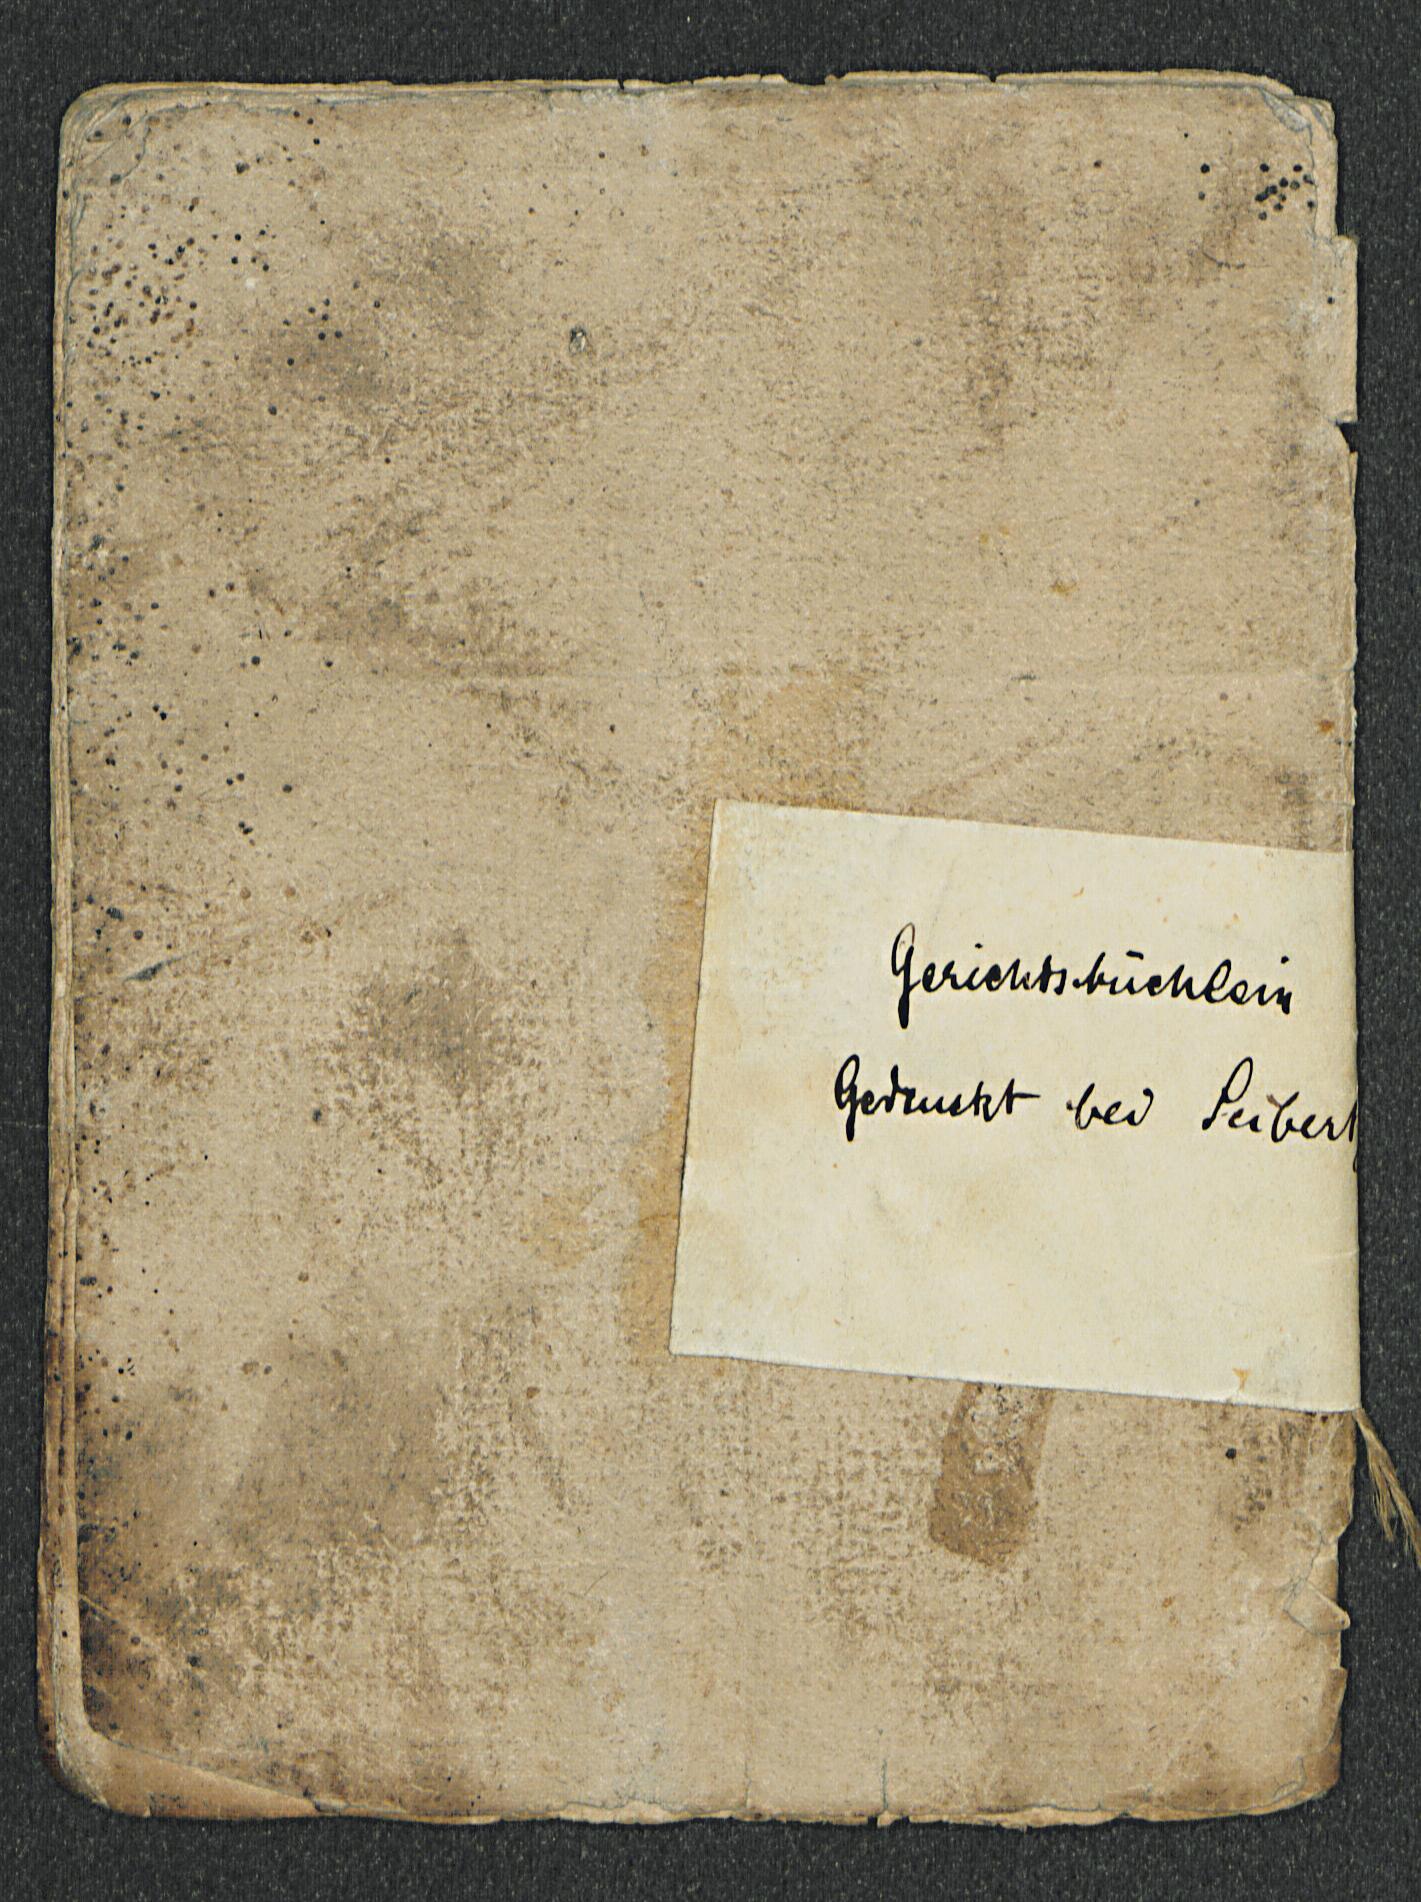 Gerichtsbüchlein
Gedruckt bei Seibert